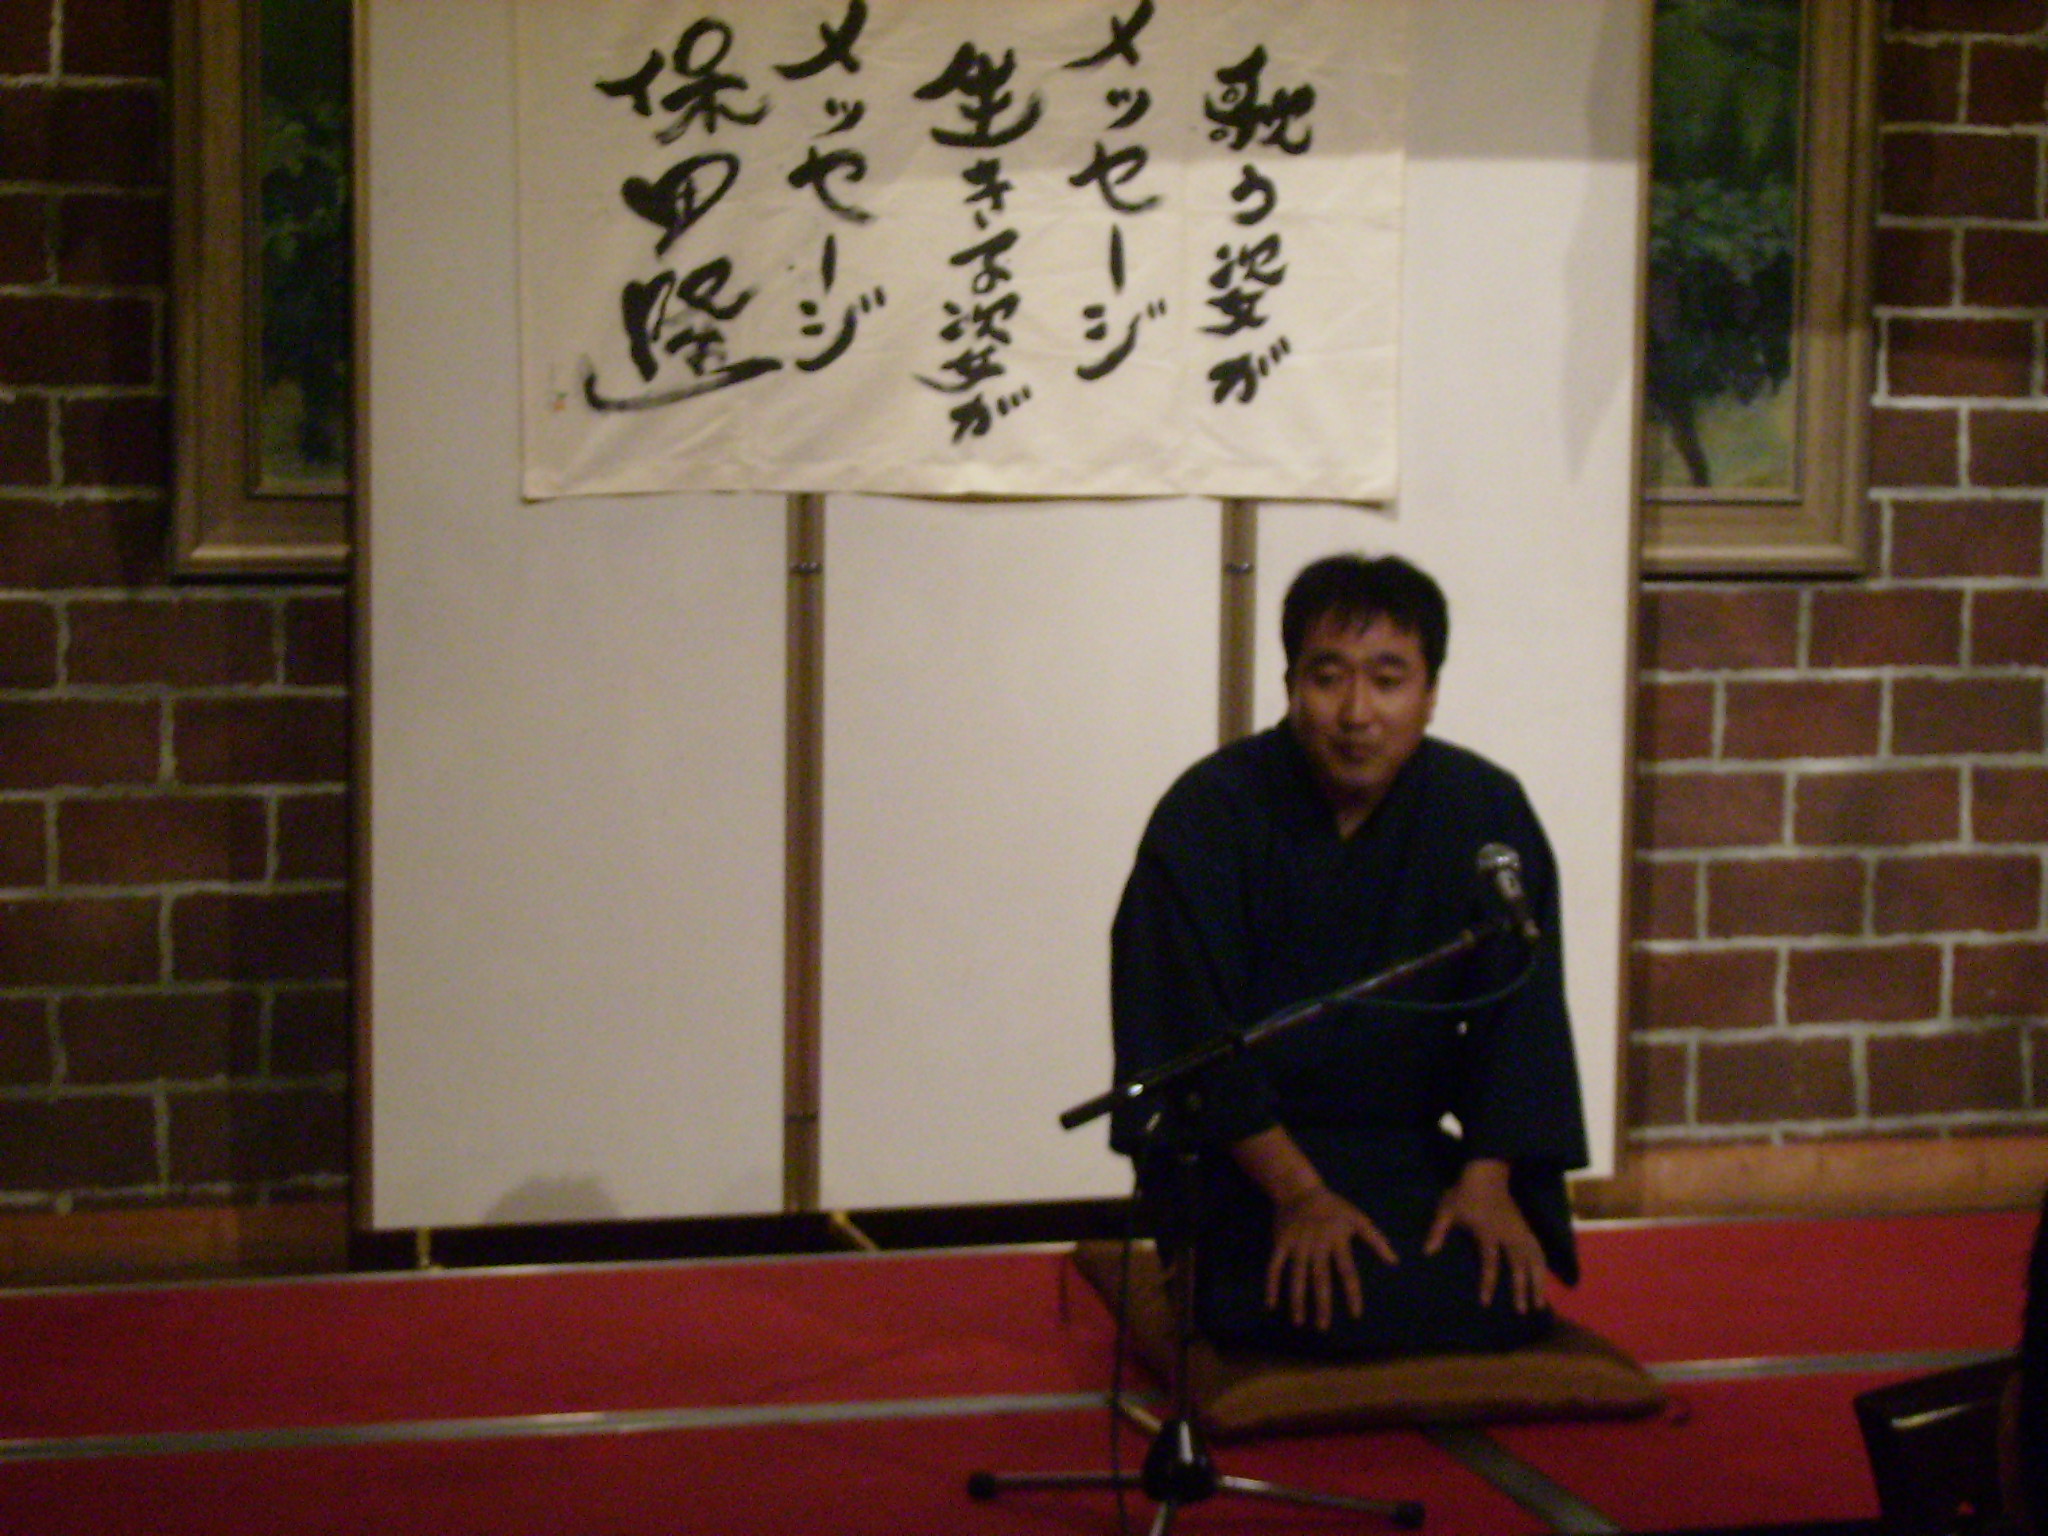 歌う姿が
メッセージ
生きる姿が
メッセージ
保田隆